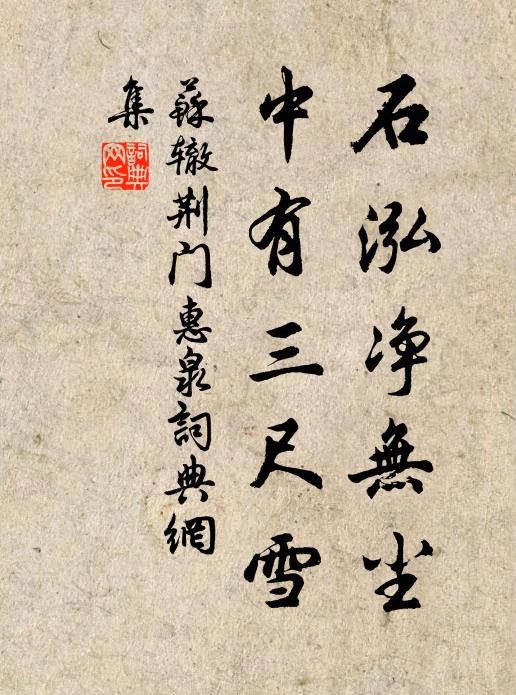 石泓净無尘
中有三尺雪
蘇辙荆门惠泉詞典網
集
詞典
网印